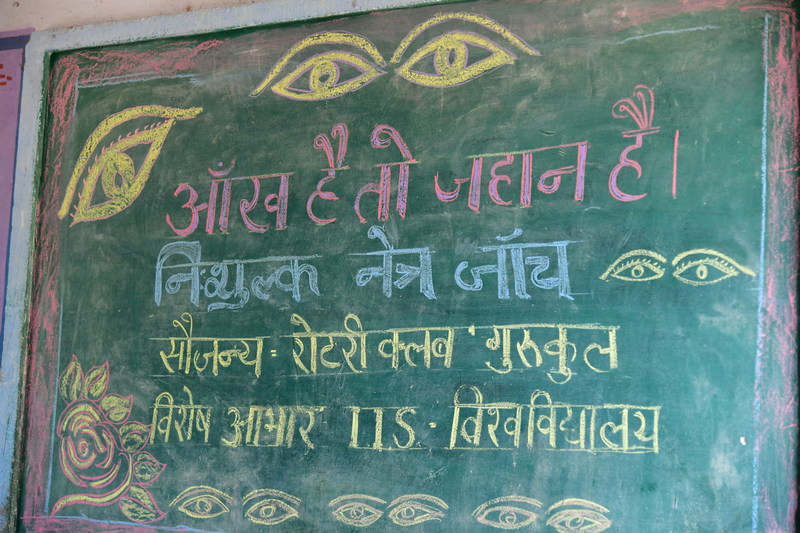 आँख है तो जहान है।
निःशुल्क नेत्र जाँच
सौजन्य - रोटरी क्लब गुरुकुल
विशेष आभार IIS - विश्वविद्यालय